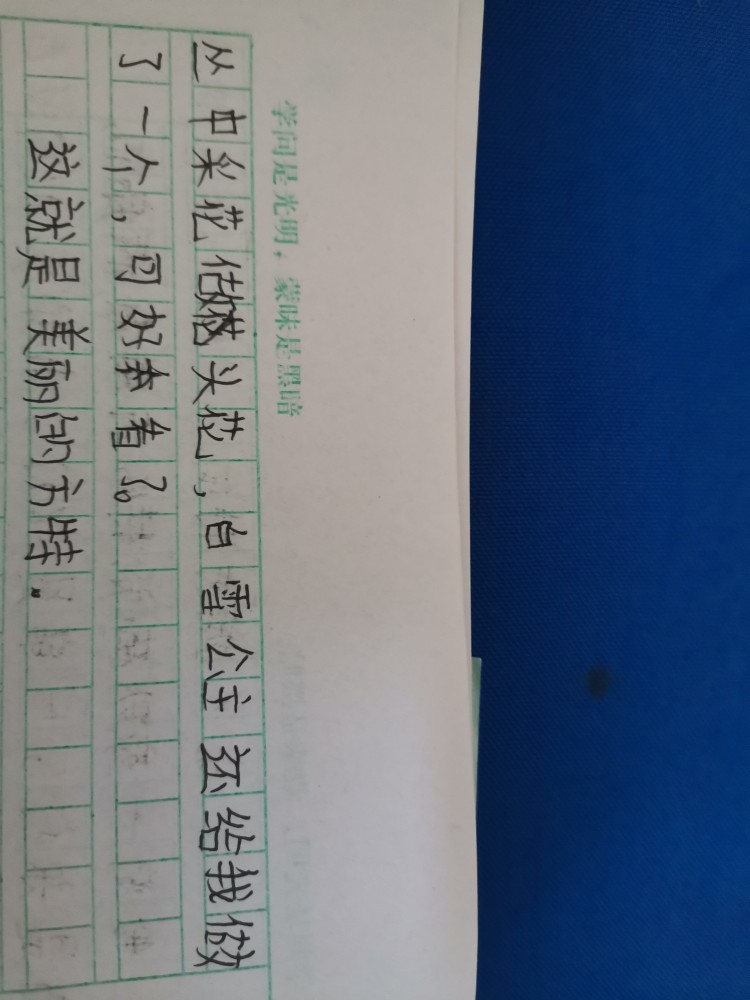 学问是光明，蒙昧是黑暗
丛中采花做成头花，白雪公主还给我做
了一个，可好本看了。
这就是美丽的方特。